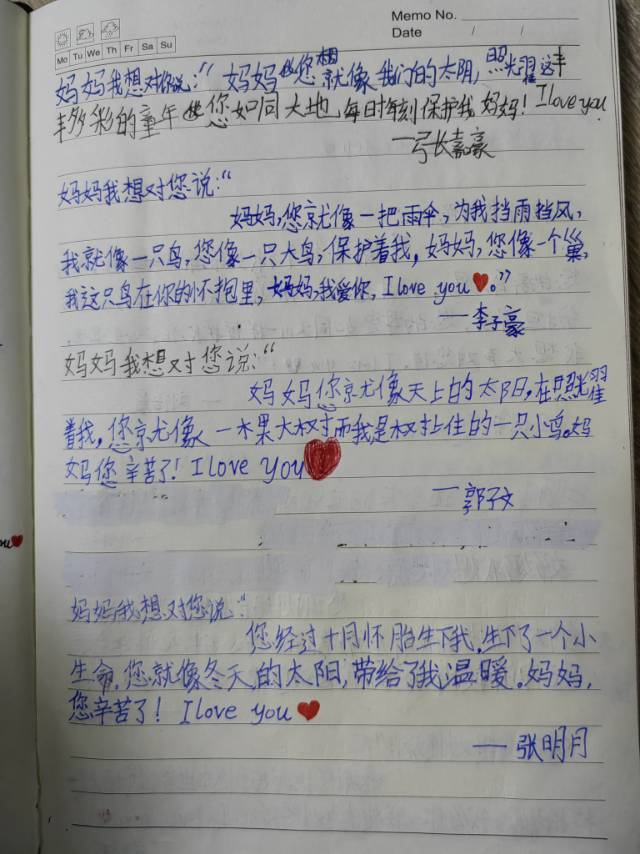 Memo No.
Mo Tu We Th Fr Sa Su
Date / /
妈妈我想对你说:“妈妈您就像我们的太阳,照光耀这丰
丰多彩的童年您如同大地,每日时刻保护我妈妈!I love you
—弓长嘉豪
妈妈我想对您说:“
妈妈,您就像一把雨伞,为我挡雨挡风,
我就像一只鸟,您像一只大鸟,保护着我,妈妈,您像一个巢,
我这只鸟在你的怀抱里,妈妈,我爱你,I love you。”
—李子豪
妈妈我想对您说:“
妈妈你就像天上的太阳,在照光耀
着我,您就像一木果大树而我是树上住的一只小鸟。妈
妈您辛苦了!I love You
—郭子文
妈妈我想对您说:“
您经过十月怀胎生下我,生下了一个小
生命,您就像冬天的太阳,带给了我温暖。妈妈,
您辛苦了!I love you
—张明月